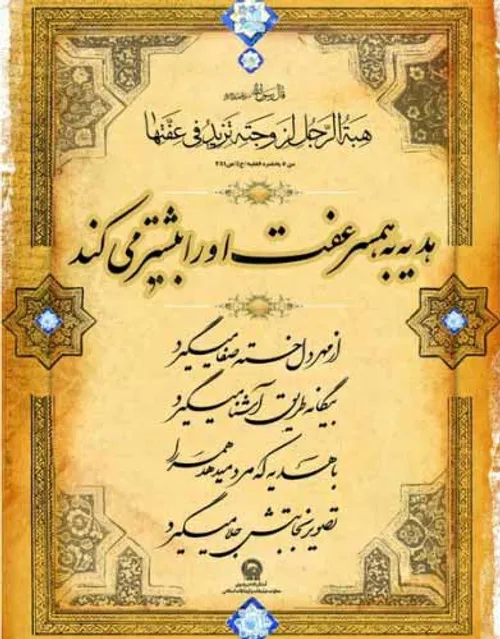 قال رسول الله
هبة الرجل لزوجته تزید فی عفتها
من لا یحضره الفقیه /ج٤/ص٣٨١
هدیه به همسر عفت او را بیشتر می کند
از مهر دل خسته صفا میگیرد
بیگانه طریق آشنا میگیرد
با هدیه که مرد میدهد همسر را
تصویر نجابتش جلا میگیرد
آستان قدس رضوی
معاونت تبلیغات و ارتباطات اسلامی